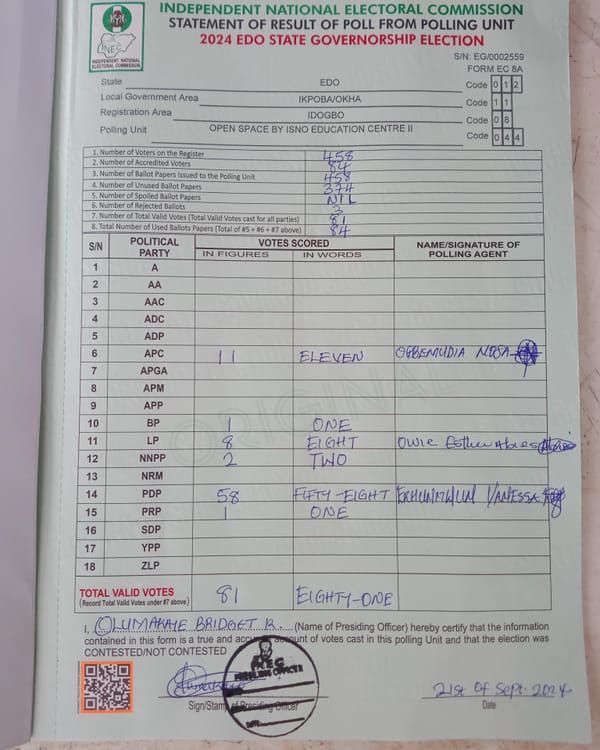 INDEPENDENT NATIONAL ELECTORAL COMMISSION
STATEMENT OF RESULT OF POLL FROM POLLING UNIT
2024 EDO STATE GOVERNORSHIP ELECTION
INEC
INDEPENDENT NATIONAL
ELECTORAL COMMISSION
S/N: EG/0002559
FORM EC 8A
State EDO Code 0 1 2
Local Government Area IKPOBA/OKHA Code 1 1
Registration Area IDOGBO Code 0 8
Polling Unit OPEN SPACE BY ISNO EDUCATION CENTRE II Code 0 4 4
1. Number of Voters on the Register 458
2. Number of Accredited Voters 84
3. Number of Ballot Papers Issued to the Polling Unit 458
4. Number of Unused Ballot Papers 374
5. Number of Spoiled Ballot Papers NIL
6. Number of Rejected Ballots 3
7. Number of Total Valid Votes (Total Valid Votes cast for all parties) 81
8. Total Number of Used Ballots Papers (Total of #5 + #6 + #7 above) 84
S/N POLITICAL PARTY VOTES SCORED NAME/SIGNATURE OF POLLING AGENT
IN FIGURES IN WORDS
1 A
2 AA
3 AAC
4 ADC
5 ADP
6 APC 11 ELEVEN OGBEMUDIA NOSA
7 APGA
8 APM
9 APP
10 BP 1 ONE
11 LP 8 EIGHT Owie Esther
12 NNPP 2 TWO
13 NRM
14 PDP 58 FIFTY-EIGHT VANESSA
15 PRP 1 ONE
16 SDP
17 YPP
18 ZLP
ORIGINAL
TOTAL VALID VOTES 81 EIGHTY-ONE
(Record Total Valid Votes under #7 above)
I, OLUMAKAYE BRIDGET R. (Name of Presiding Officer) hereby certify that the information
contained in this form is a true and account of votes cast in this polling Unit and that the election was
CONTESTED/NOT CONTESTED
INEC
PRESIDING OFFICER
DATE
21st Of Sept. 2024
Sign/Stamp of Presiding Officer Date